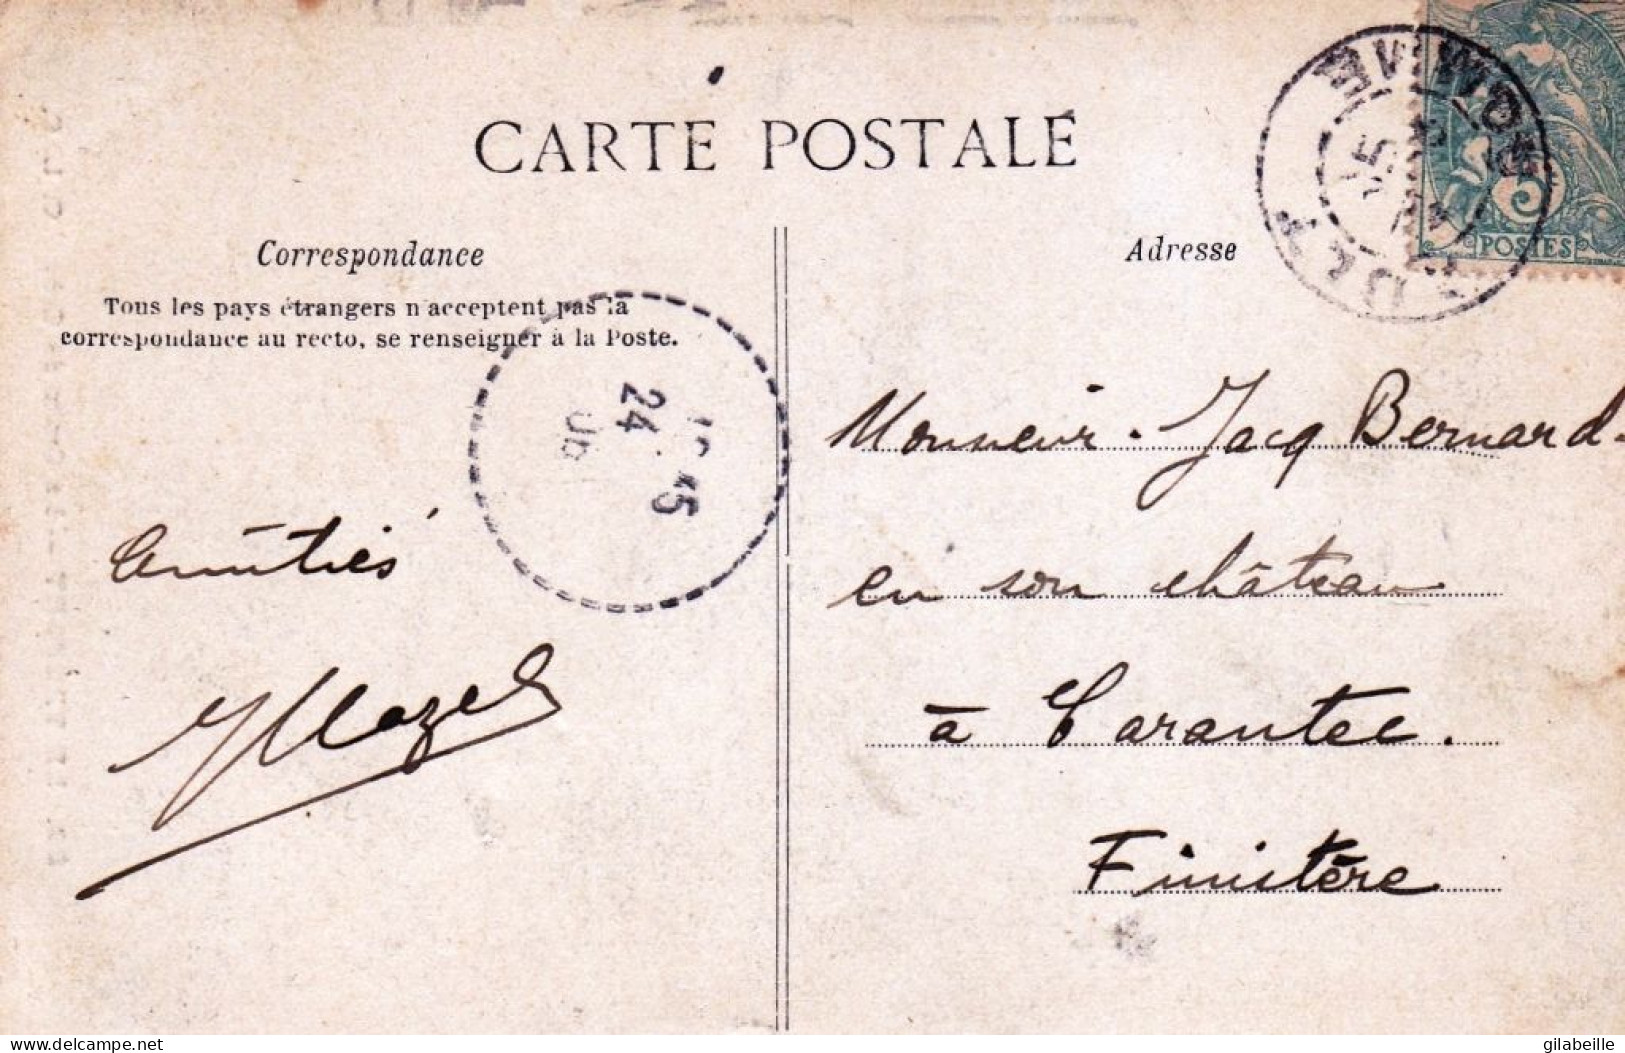 CARTE POSTALE
Correspondance
Tous les pays étrangers n'acceptent pas la
correspondance au recto, se renseigner à la Poste.
Adresse
5
POSTES
24
Monsieur Jacq Bernard
en son château
à Carantec.
Finistère
Amitiés
Mazel
delcampe.net
gilabeille